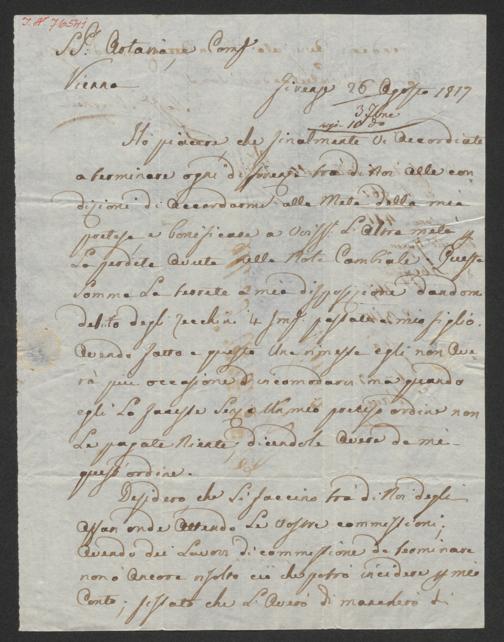 I.N. 76541
SS.ri Artaria, e Comp.
Vienna
Firenze 26 Agosto 1817
Ho piacere che finalmente vi accordiate
a terminare ogni differenza trà di Noi alle con
dizioni di accordarmi alla Metà della mia
pretesa e bonificare a L'altra metà p
La perdita avuta nella Not. Cambiale: Questa
somma La terrete a mia disposizione dandomi
debito degli Zecchini 4 Imp. passati a mio figlio.
Avendo fatto a questo Una rimessa egli non Ave
rà più occasione d'incomodarvi ma quando
egli Lo facesse Senza Un mio preciso ordine non
Le pagate Niente, dicendole Avere da mè
quest'ordine.
Desidero che Si faccino trà di Noi degli
affari onde attendo Le vostre commissioni;
Avendo dei Lavori di commissione da terminare
non ò Ancora risolto ciò che potrò incidere p mio
Conto; fissato che L'averò di manderò di